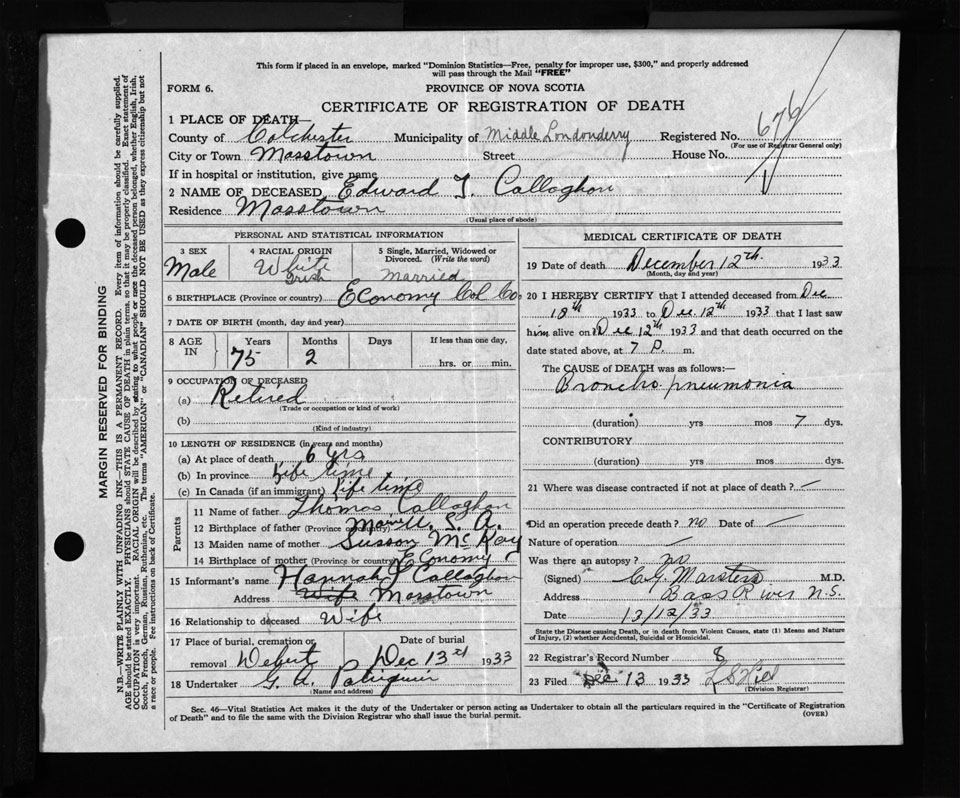 This form if placed in an envelope, marked "Dominion Statistics—Free, penalty for improper use, $300," and properly addressed
will pass through the Mail "FREE"
FORM 6.
PROVINCE OF NOVA SCOTIA
CERTIFICATE OF REGISTRATION OF DEATH
1 PLACE OF DEATH—
County of Colchester Municipality of Middle Londonderry Registered No. 676
(For use of Registrar General only)
City or Town Masstown Street House No.
If in hospital or institution, give name
2 NAME OF DECEASED Edward J. Callaghan
Residence Masstown
(Usual place of abode)
PERSONAL AND STATISTICAL INFORMATION
3 SEX 4 RACIAL ORIGIN 5 Single, Married, Widowed or
Divorced. (Write the word)
Male White Irish Married
6 BIRTHPLACE (Province or country) Economy Col Co.
7 DATE OF BIRTH (month, day and year)
8 AGE IN Years Months Days If less than one day,
75 2 hrs. or min.
9 OCCUPATION OF DECEASED
(a) Retired
(Trade or occupation or kind of work)
(b)
(Kind of industry)
10 LENGTH OF RESIDENCE (in years and months)
(a) At place of death 6 yrs
(b) In province Life time
(c) In Canada (if an immigrant) Life time
Parents
11 Name of father Thomas Callaghan
12 Birthplace of father (Province or country) U. S. A.
13 Maiden name of mother Susson McKay
14 Birthplace of mother (Province or country) Economy
15 Informant's name Hannah J Callaghan
Address Wife Masstown
16 Relationship to deceased Wife
17 Place of burial, cremation or Date of burial
removal Debert Dec 13th 1933
18 Undertaker G. A.
(Name and address)
MEDICAL CERTIFICATE OF DEATH
19 Date of death December 12th. 1933
(Month, day and year)
20 I HEREBY CERTIFY that I attended deceased from Dec
1933 to Dec. 12th 1933 that I last saw
him alive on Dec 12th 1933 and that death occurred on the
date stated above, at 7 P. m.
The CAUSE of DEATH was as follows:—
Broncho pneumonia
(duration) yrs mos 7 dys.
CONTRIBUTORY
(duration) yrs mos dys.
21 Where was disease contracted if not at place of death? —
Did an operation precede death? no Date of —
Nature of operation —
Was there an autopsy? no
(Signed) C.G. Marsters M.D.
Address Bass River N.S.
Date 13/12/33
State the Disease causing Death, or in death from Violent Causes, state (1) Means and Nature
of Injury, (2) whether Accidental, Suicidal or Homicidal.
22 Registrar's Record Number 8
23 Filed Dec 13 1933
(Division Registrar)
Sec. 46—Vital Statistics Act makes it the duty of the Undertaker or person acting as Undertaker to obtain all the particulars required in the "Certificate of Registration
of Death" and to file the same with the Division Registrar who shall issue the burial permit.
(OVER)
MARGIN RESERVED FOR BINDING
N.B.—WRITE PLAINLY WITH UNFADING INK—THIS IS A PERMANENT RECORD. Every item of information should be carefully supplied.
AGE should be stated EXACTLY. PHYSICIANS should STATE CAUSE OF DEATH in plain terms, so that it may be properly classified. Exact statement of
OCCUPATION is very important. RACIAL ORIGIN will be described by stating to what people or race the deceased person belonged, whether English, Irish,
Scotch, French, German, Russian, Ruthenian, etc. The terms "AMERICAN" or "CANADIAN" SHOULD NOT BE USED as they express citizenship but not
a race or people. Fee instructions on back of Certificate.